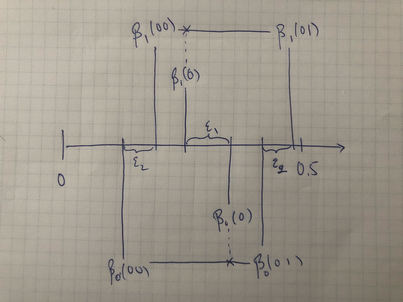 β₁(00) β₁(01)
β₁(0)
ε₁
ε₂ ε₂ 0.5
0
β₀(0)
β₀(00) β₀(01)